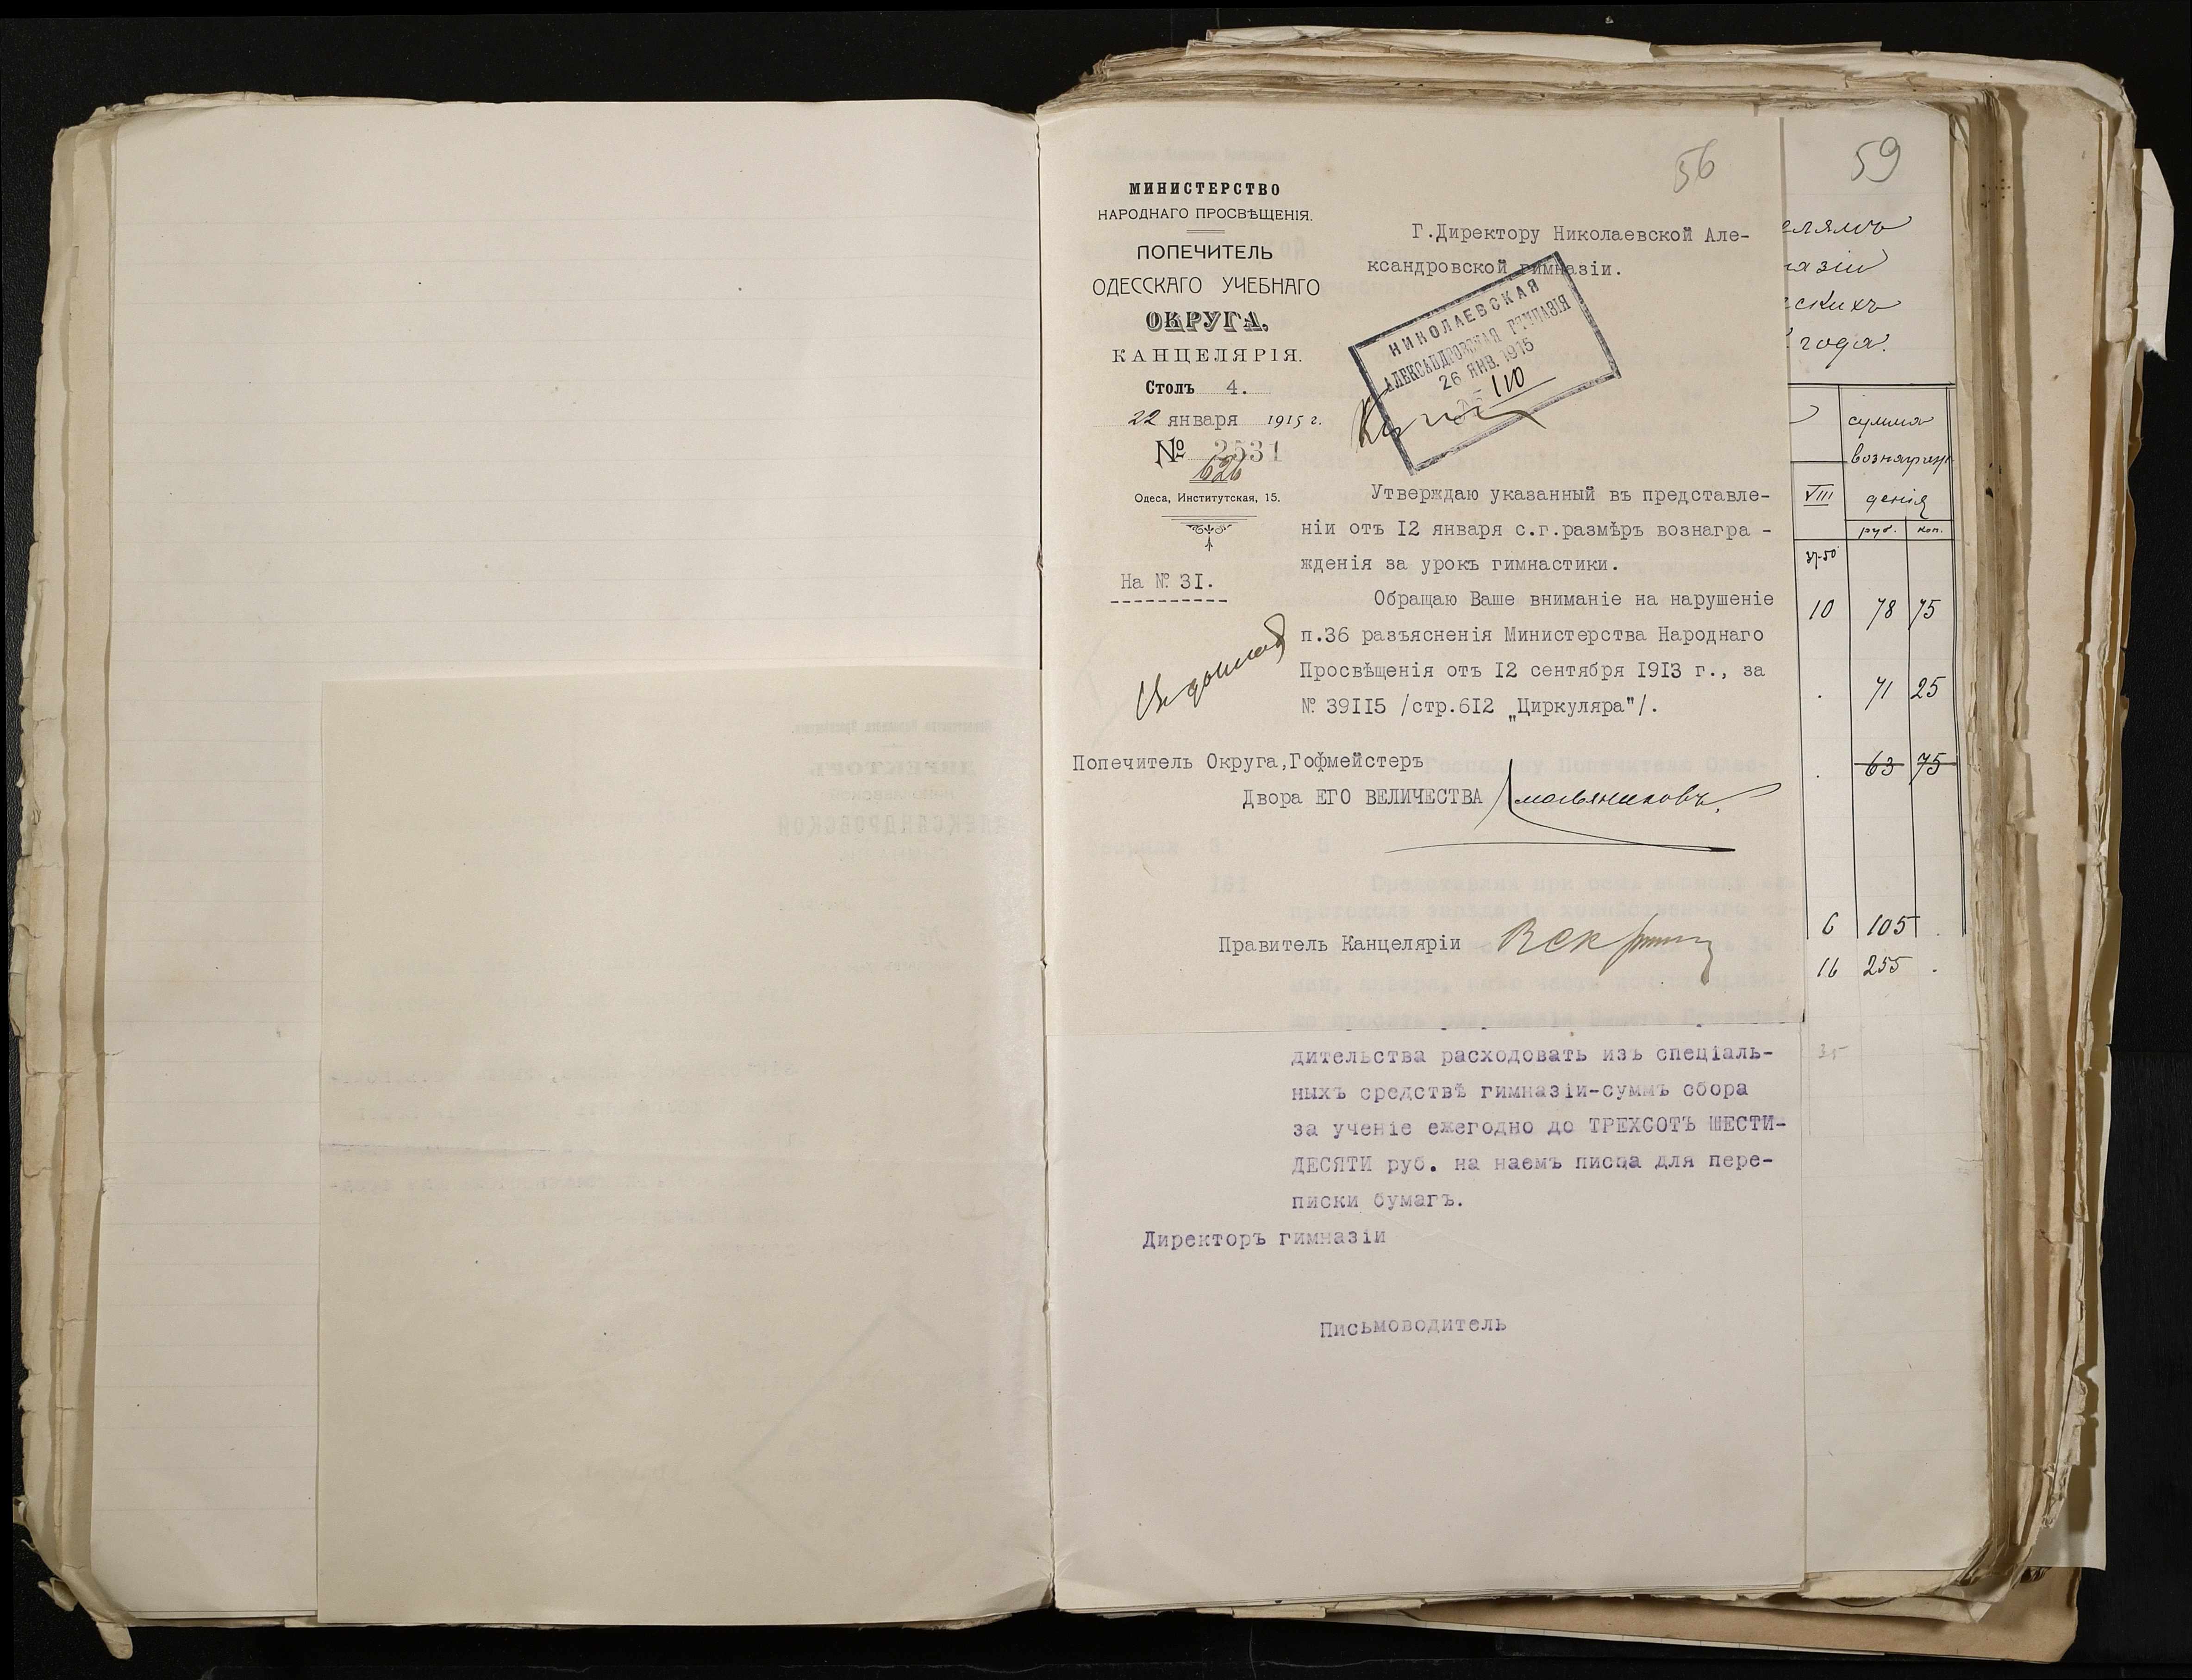 56
МИНИСТЕРСТВО
НАРОДНАГО ПРОСВѢЩЕНІЯ.
ПОПЕЧИТЕЛЬ
ОДЕССКАГО УЧЕБНАГО
ОКРУГА,
КАНЦЕЛЯРІЯ.
Столъ 4.
22 января 1915 г.
№ 2531
626
Одеса, Институтская, 15.
На № 31.
Г.Директору Николаевской Але-
ксандровской гимназіи.
НИКОЛАЕВСКАЯ
АЛЕКСАНДРОВСКАЯ ГИМНАЗІЯ
26 ЯНВ. 1915
№ 110
Утверждаю указанный въ представле-
ніи отъ I2 января с.г.размѣръ вознагра -
жденія за урокъ гимнастики.
Обращаю Ваше вниманіе на нарушеніе
п.36 разъясненія Министерства Народнаго
Просвѣщенія отъ I2 сентября I9I3 г., за
№ 39II5 /стр.6I2 „Циркуляра"/.
Попечитель Округа,Гофмейстеръ
Двора ЕГО ВЕЛИЧЕСТВА
Правитель Канцеляріи
дительства расходовать изъ спеціаль-
ныхъ средствъ гимназіи-суммъ сбора
за ученіе ежегодно до ТРЕХСОТЪ ШЕСТИ-
ДЕСЯТИ руб. на наемъ писца для пере-
писки бумагъ.
Директоръ гимназіи
Письмоводитель
59
елямъ
назіи
ескихъ
года.
сумма
вознаграж
VIII денія
руб. коп.
37-50
10 78 75
71 25
63 75
6 105
16 255